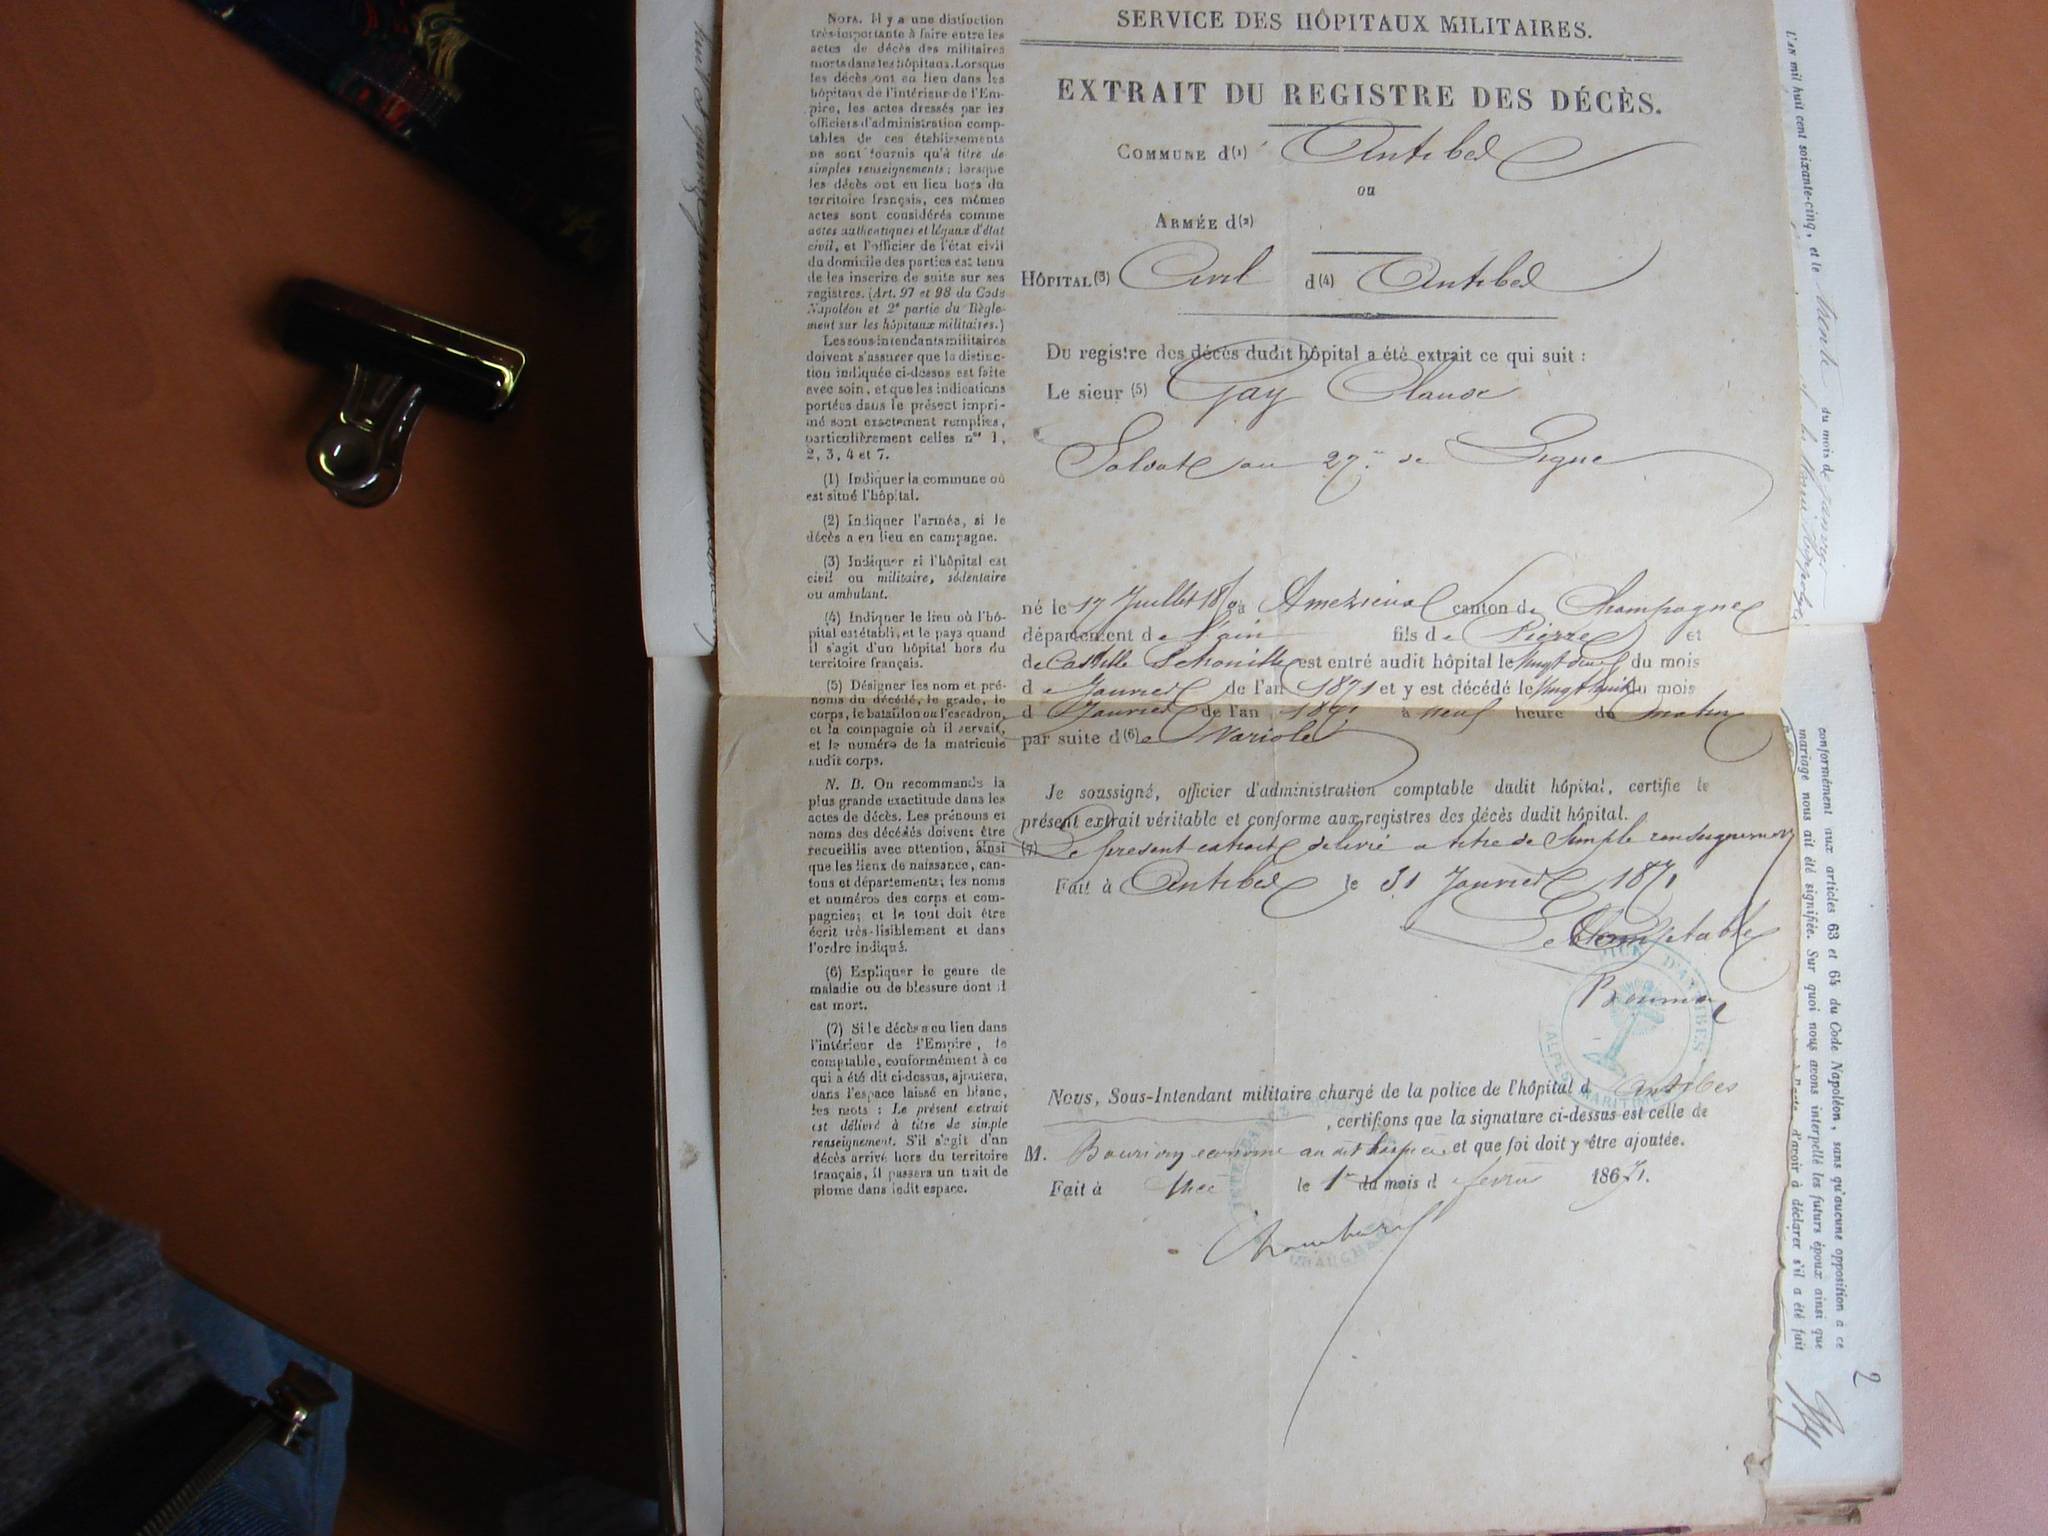 SERVICE DES HÔPITAUX MILITAIRES.
EXTRAIT DU REGISTRE DES DÉCÈS.
COMMUNE d(1) Antibes
ou
ARMÉE d(2)
HÔPITAL(3) Civil d(4) Antibes
Du registre des décès dudit hôpital a été extrait ce qui suit :
Le sieur (5) Gay Claude
Soldat au 27e de Ligne
né le 17 Juillet à canton de Champagne
département de l'ain fils de Pierre et
de est entré audit hôpital le vingt deux du mois
de Janvier de l'an 1871 et y est décédé le vingt huit du mois
d Janvier de l'an 1871 à neuf heure du matin
par suite d(6)e Variole
Je soussigné, officier d'administration comptable dudit hôpital, certifie le
présent extrait véritable et conforme aux registres des décès dudit hôpital.
(7) Le present extrait delivré a titre de simple renseignement
Fait à Antibes le 31 Janvier 1871
Le Comptable
Nous, Sous-Intendant militaire chargé de la police de l'hôpital d Antibes
, certifions que la signature ci-dessus est celle de
M. econome au dit hospice et que foi doit y être ajoutée.
Fait à Nice le 1er du mois d fevrier 1871.
NOTA. Il y a une distinction
très-importante à faire entre les
actes de décès des militaires
morts dans les hôpitaux. Lorsque
les décès ont eu lieu dans les
hôpitaux de l'intérieur de l'Em-
pire, les actes dressés par les
officiers d'administration comp-
tables de ces établissements
ne sont fournis qu'à titre de
simples renseignements; lorsque
les décès ont eu lieu hors du
territoire français, ces mêmes
actes sont considérés comme
actes authentiques et légaux d'état
civil, et l'officier de l'état civil
du domicile des parties est tenu
de les inscrire de suite sur ses
registres. (Art. 97 et 98 du Code
Napoléon et 2e partie du Règle-
ment sur les hôpitaux militaires.)
Les sous-intendants militaires
doivent s'assurer que la distinc-
tion indiquée ci-dessus est faite
avec soin, et que les indications
portées dans le présent impri-
mé sont exactement remplies,
particulièrement celles nos 1,
2, 3, 4 et 7.
(1) Indiquer la commune où
est situé l'hôpital.
(2) Indiquer l'armée, si le
décès a eu lieu en campagne.
(3) Indiquer si l'hôpital est
civil ou militaire, sédentaire
ou ambulant.
(4) Indiquer le lieu où l'hô-
pital est établi, et le pays quand
il s'agit d'un hôpital hors du
territoire français.
(5) Désigner les nom et pré-
noms du décédé, le grade, le
corps, le bataillon ou l'escadron,
et la compagnie où il servait,
et le numéro de la matricule
audit corps.
N. B. On recommande la
plus grande exactitude dans les
actes de décès. Les prénoms et
noms des décédés doivent être
recueillis avec attention, ainsi
que les lieux de naissance, can-
tons et départements; les noms
et numéros des corps et com-
pagnies; et le tout doit être
écrit très-lisiblement et dans
l'ordre indiqué.
(6) Expliquer le genre de
maladie ou de blessure dont il
est mort.
(7) Si le décès a eu lieu dans
l'intérieur de l'Empire, le
comptable, conformément à ce
qui a été dit ci-dessus, ajoutera,
dans l'espace laissé en blanc,
les mots : Le présent extrait
est délivré à titre de simple
renseignement. S'il s'agit d'un
décès arrivé hors du territoire
français, il passera un trait de
plume dans ledit espace.
L'AN mil huit cent soixante-cinq, et le trente du mois de janvier
conformément aux articles 63 et 64 du Code Napoléon, sans qu'aucune opposition à ce
mariage nous ait été signifiée. Sur quoi nous avons interpellé les futurs époux ainsi que
d'avoir à déclarer s'il a été fait
2